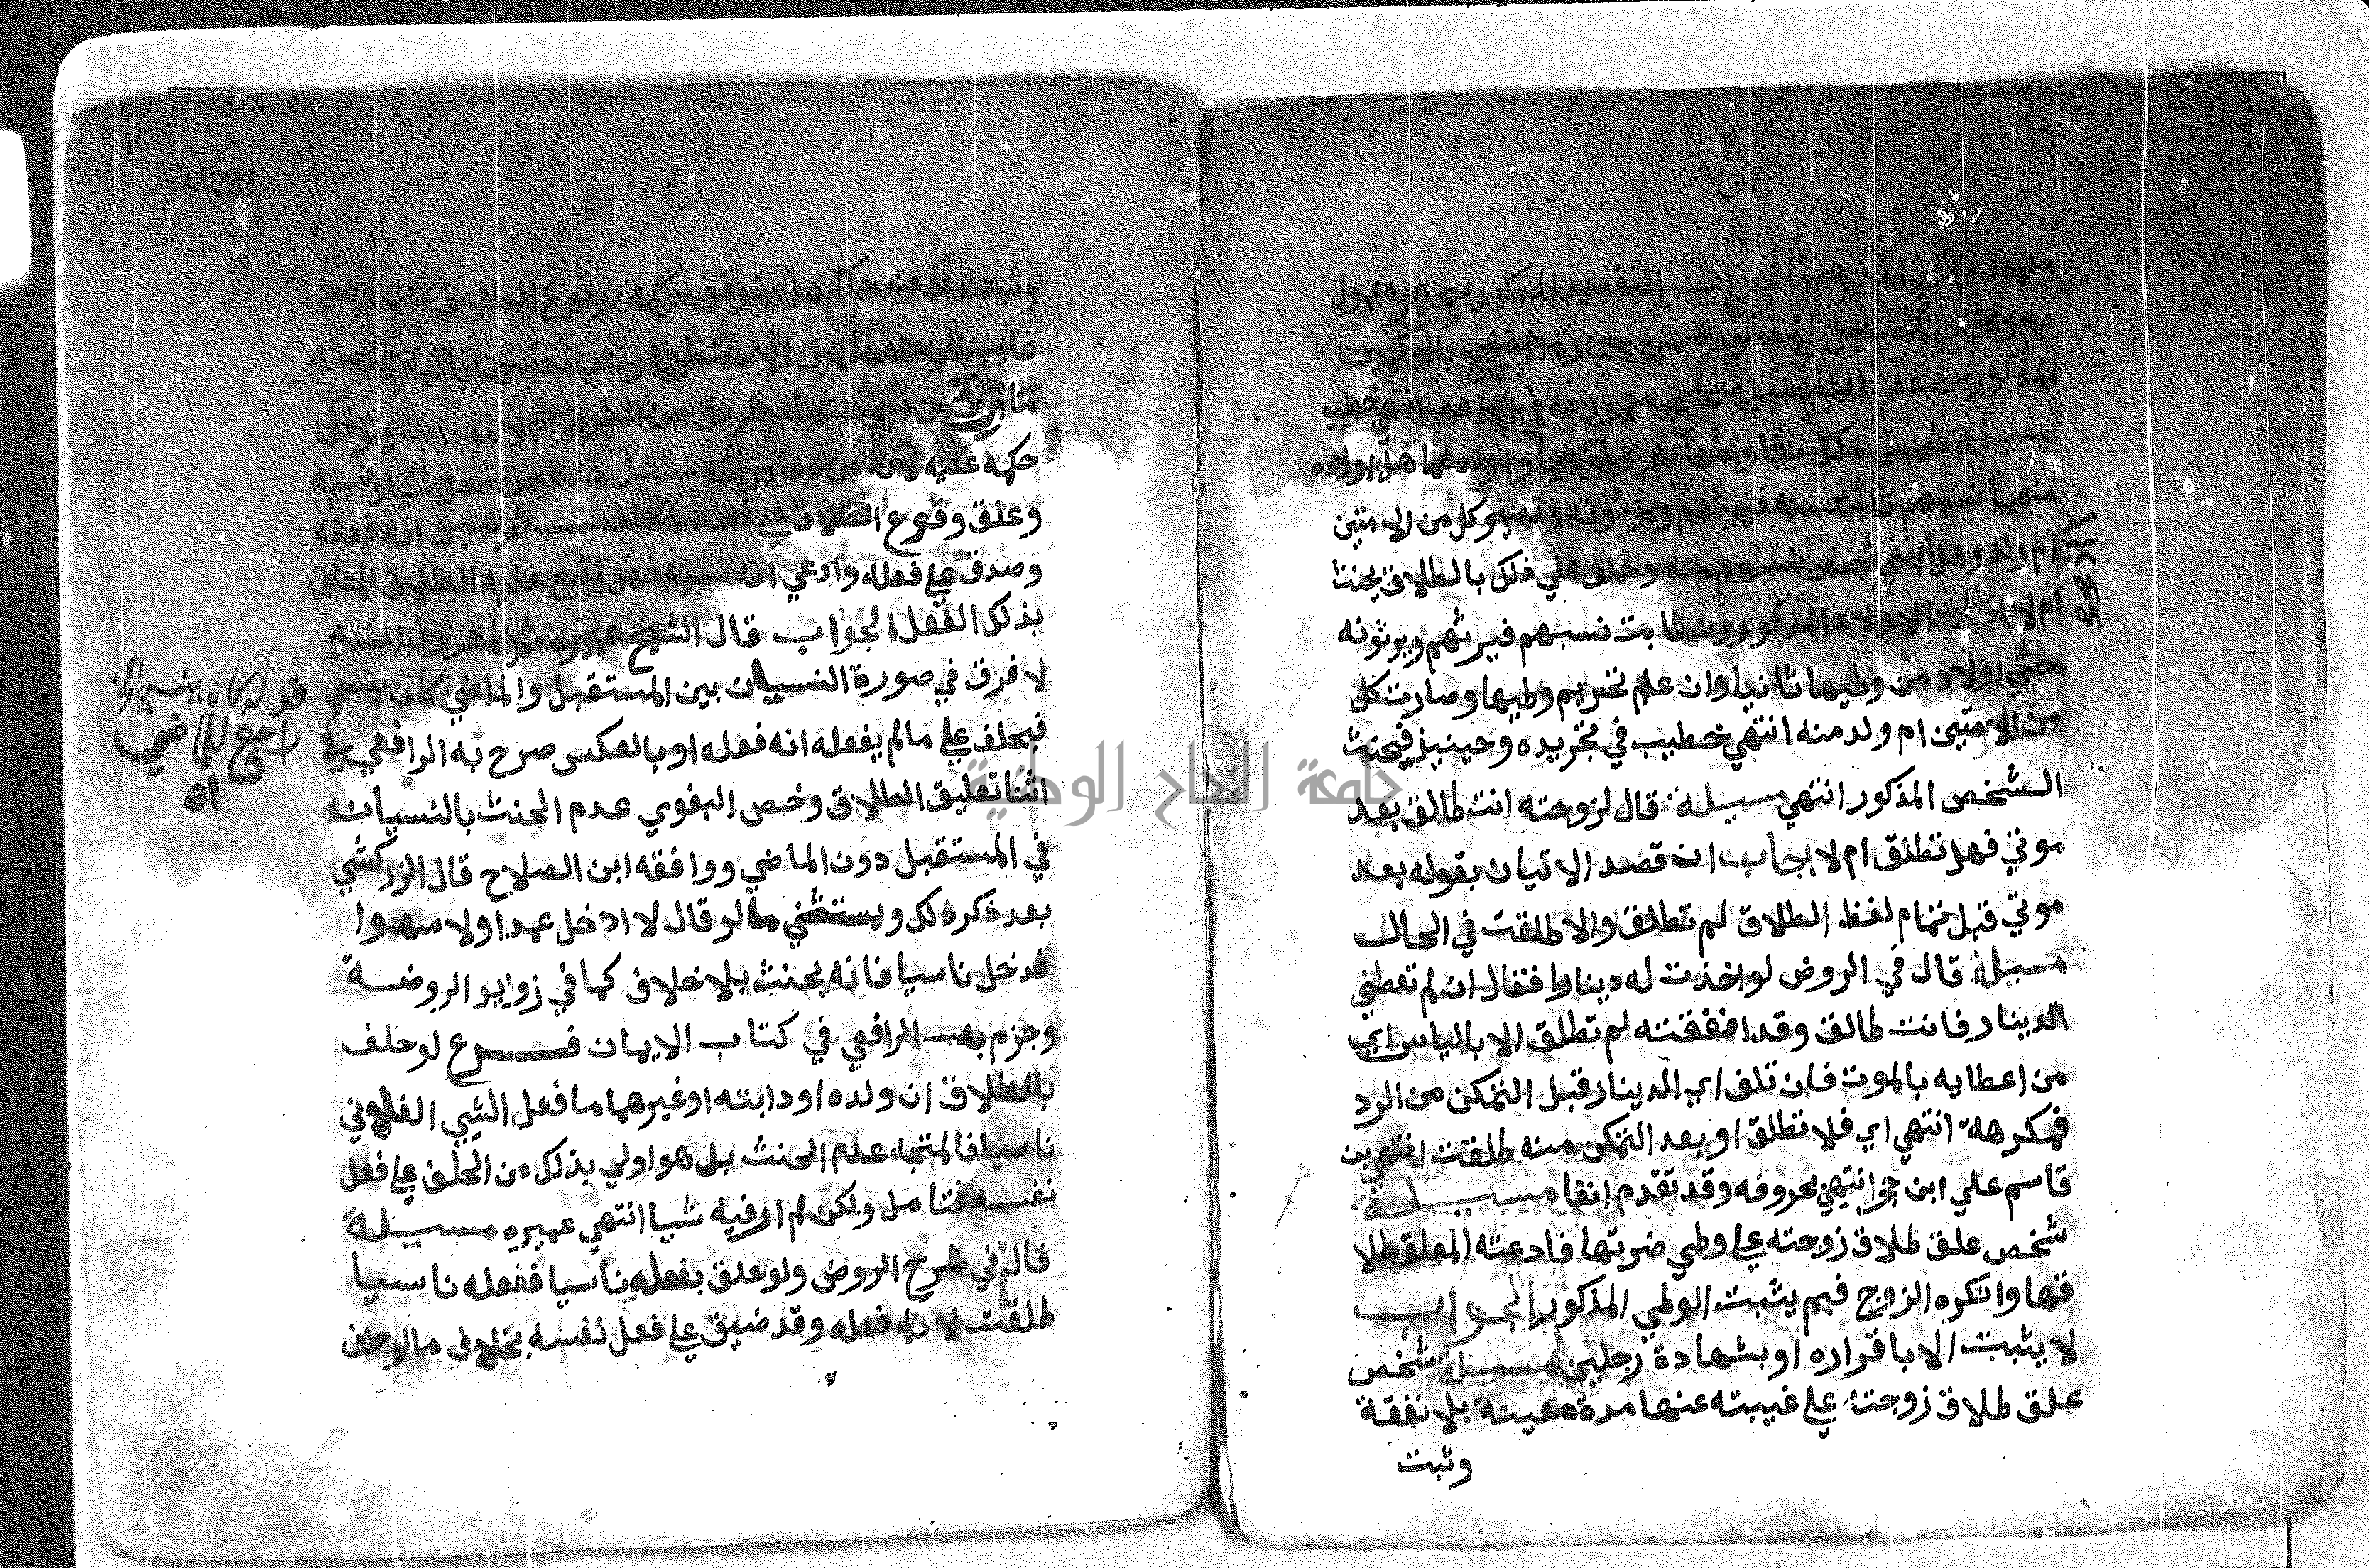 الجواب التقييد المذكور صحيح معمول
به المذكورة من عبارة المنهج بالحكمين
المذكورين علي التفصيل صحيح معمول به في المذهب انتهي خطيب
مسيلة شخص ملك بنتا وامها ثم وطيهما واولدهما هل اولاده
منهما نسبهم ثابت منه فيرثهم ويرثونه وتصير كل من الامتين
ام ولد وهل اذا نفي شخص نسبهم منه وحلف علي ذلك بالطلاق يحنث
ام لا اجاب الاولاد المذكورون ثابت نسبهم فيرثهم ويرثونه
حتي اولاد من وطيها ثانيا وان علم تحريم وطيها وصارت كل
من الامتين ام ولد منه انتهي خطيب في تحريده وحينيذ فيحنث
الشخص المذكور انتهي مسيلة قال لزوجته انت طالق بعد
موتي فهل تطلق ام لا اجاب ان قصد الاتيان بقوله بعد
موتي قبل تمام لفظ الطلاق لم تطلق والا طلقت في الحال
مسيلة قال في الروض لو اخذت له دينارا فقال ان لم تعطني
الدينار فانت طالق وقد انفقته لم تطلق الا بالياس اي
من اعطايه بالموت فان تلف اي الدينار قبل التمكن من الرد
فمكرهة انتهي اي فلا تطلق او بعد التمكن منه طلقت انتهي بن
قاسم علي ابن حجر انتهي بحروفه وقد تقدم انفا مسيلة
شخص علق طلاق زوجته علي وطي ضرتها فادعته المعلق طلا
قها وانكره الزوج فبم يثبت الوطي المذكور الجواب
لا يثبت الا باقراره او بشهادة رجلين مسيلة شخص
علق طلاق زوجته علي غيبته عنها مدة معينة بلا نفقة
وثبت
٤١
وثبت ذلك عند حاكم هل يتوقف حكمه بوقوع الطلاق عليه وهو
غايب الي حلفها يمين الاستظهار وان نفقتها باقية في ذمته
ما بري من شي منها بطريق من الطرق ام لا اجاب يتوقف
حكمه عليه مسيلة فيمن فعل شيا ونسيه
وعلق وقوع الطلاق علي فعله بالحلف ثم تبين انه فعله
وصدق علي فعله وادعي انه نسيه فهل يقع عليه الطلاق المعلق
بذلك الفعل الجواب قال الشيخ عميره ثم المعروف انه
لا فرق في صورة النسيان بين المستقبل والماضي كان ينسي
فيحلف علي ما لم يفعله انه فعله او بالعكس صرح به الرافعي في
اثنا تعليق الطلاق وخص البغوي عدم الحنث بالنسيان
في المستقبل دون الماضي ووافقه ابن الصلاح قال الزركشي
بعد ذكره ذلك ويستثني ما لو قال لا ادخل عمدا ولا سهوا
فدخل ناسيا فانه يحنث بلا خلاف كما في زوايد الروضة
وجزم به الرافعي في كتاب الايمان فرع لو حلف
بالطلاق ان ولده او دابته او غيرهما ما فعل الشي الفلاني
ناسيا فالمتجه عدم الحنث بل هو اولي بذلك من الحلف علي فعل
نفسه فتامل ولكن لم ار فيه شيا انتهي عميره مسيلة
قال في شرح الروض ولو علق بفعله ناسيا ففعله ناسيا
طلقت لانه فعله وقد ضيق علي فعل نفسه بخلاف ما لو حلف
قوله كان ينسي الخ
راجع للماضي
اه
جامعة النجاح الوطنية